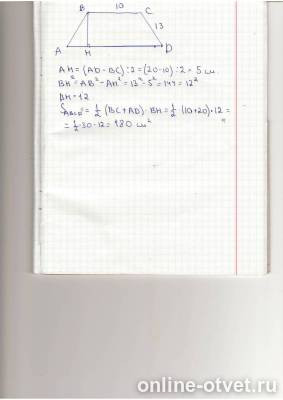 10
B C
13
A H D
AH = (AD - BC) : 2 = (20-10) : 2 = 5 см.
BH² = AB² - AH² = 13² - 5² = 144 = 12²
BH = 12
S ABCD = 1/2 (BC + AD) · BH = 1/2 · (10+20) · 12 =
= 1/2 · 30 · 12 = 180 см²
online-otvet.ru